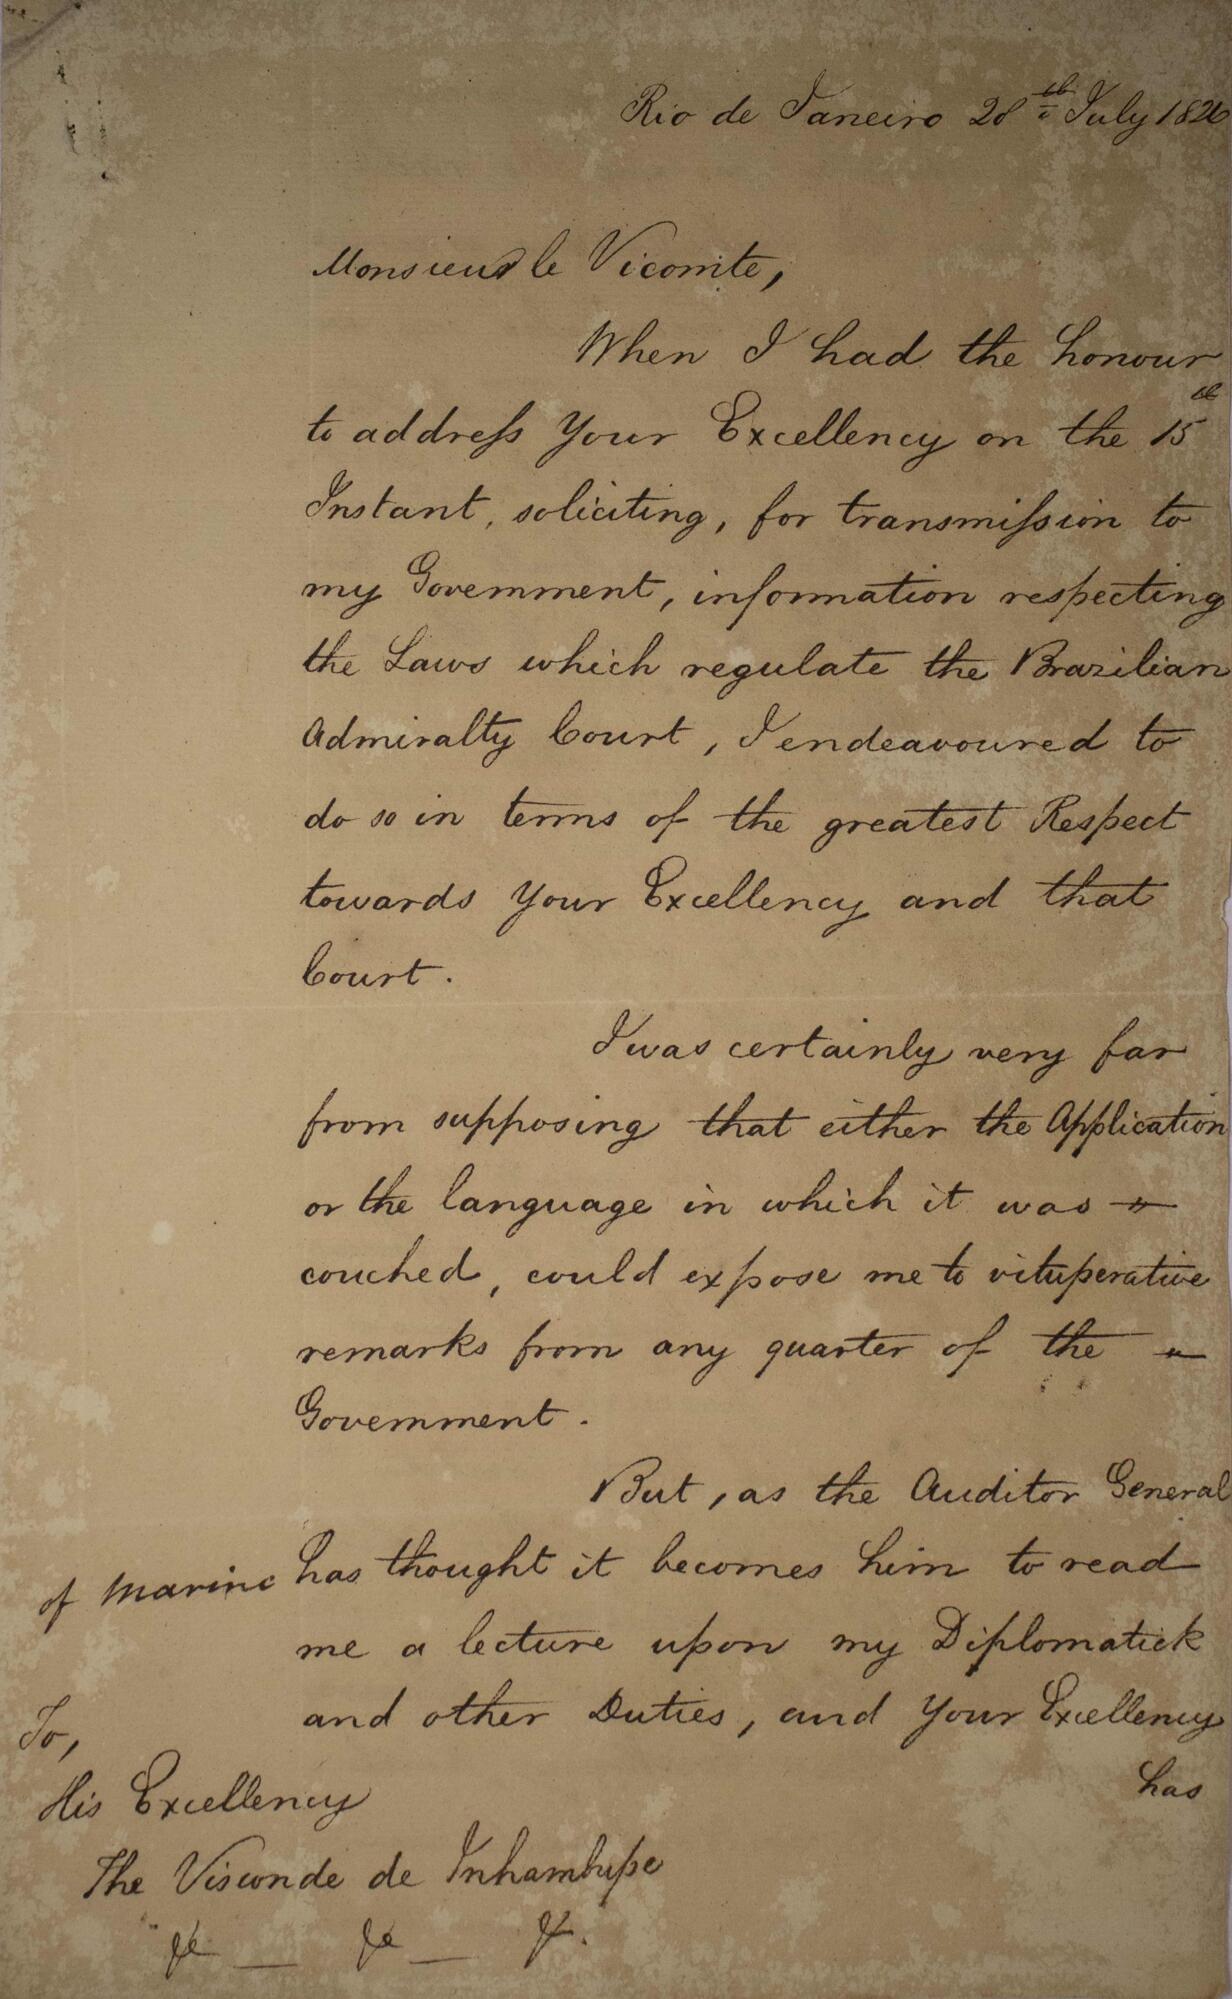 Rio de Janeiro 28th July 1826
Monsieur le Vicomte,
When I had the honour
to address Your Excellency on the 15th
Instant, soliciting, for transmission to
my Government, information respecting
the Laws which regulate the Brazilian
Admiralty Court, I endeavoured to
do so in terms of the greatest Respect
towards Your Excellency and that
Court.
I was certainly very far
from supposing that either the Application
or the language in which it was
couched, could expose me to vituperative
remarks from any quarter of the
Government.
But, as the Auditor General
of Marine has thought it becomes him to read
me a lecture upon my Diplomatick
and other Duties, and Your Excellency
has
To,
His Excellency
The Visconde de Inhambupe
&c _ &c _ &c.